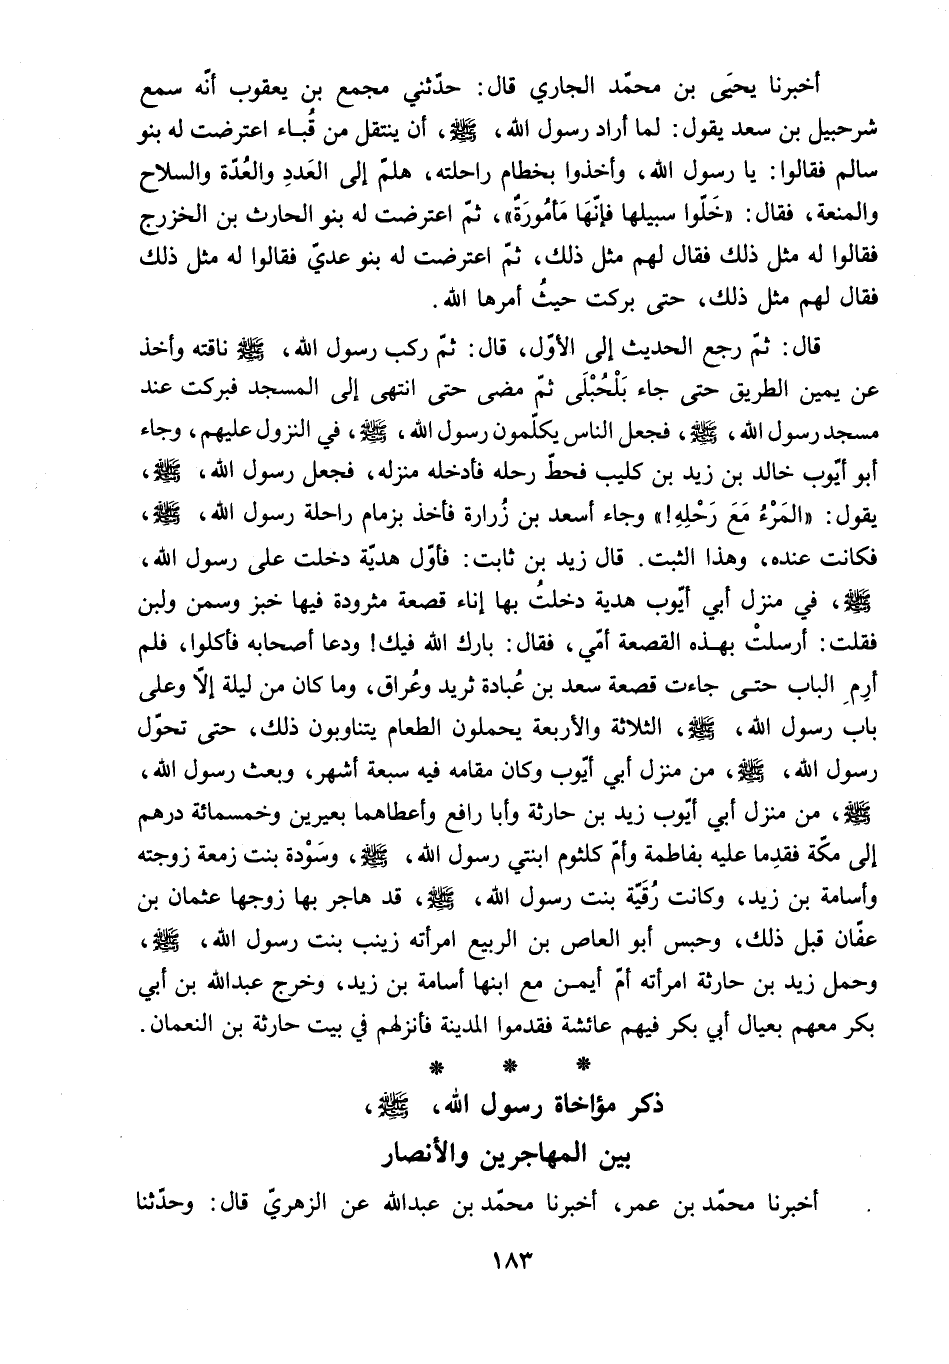 أخبرنا يحيَى بن محمّد الجاري قال: حدّثني مجمع بن يعقوب أنّه سمع
شرحبيل بن سعد يقول: لما أراد رسول الله، ﷺ، أن ينتقل من قُباء اعترضت له بنو
سالم فقالوا: يا رسول الله، وأخذوا بخطام راحلته، هلمّ إلى العَددِ والعُدّة والسلاح
والمنعة، فقال: «خَلّوا سبيلها فإنّهَا مَأمُورَةٌ»، ثمّ اعترضت له بنو الحارث بن الخزرج
فقالوا له مثل ذلك فقال لهم مثل ذلك، ثمّ اعترضت له بنو عديّ فقالوا له مثل ذلك
فقال لهم مثل ذلك، حتى بركت حيثُ أمرها الله.
قال: ثمّ رجع الحديث إلى الأوّل، قال: ثمّ ركب رسول الله، ﷺ ناقته وأخذ
عن يمين الطريق حتى جاء بَلْحُبْلَى ثمّ مضى حتى انتهى إلى المسجد فبركت عند
مسجد رسول الله، ﷺ، فجعل الناس يكلّمون رسول الله، ﷺ، في النزول عليهم، وجاء
أبو أيّوب خالد بن زيد بن كليب فحطّ رحله فأدخله منزله، فجعل رسول الله، ﷺ،
يقول: «المَرْءُ مَعَ رَحْلِهِ!» وجاء أسعد بن زُرارة فأخذ بزمام راحلة رسول الله، ﷺ،
فكانت عنده، وهذا الثبت. قال زيد بن ثابت: فأوّل هديّة دخلت على رسول الله،
ﷺ، في منزل أبي أيّوب هدية دخلتُ بها إناء قصعة مثرودة فيها خبز وسمن ولبن
فقلت: أرسلتْ بهذه القصعة أمّي، فقال: بارك الله فيك! ودعا أصحابه فأكلوا، فلم
أرِمِ الباب حتى جاءت قصعة سعد بن عُبادة ثريد وعُراق، وما كان من ليلة إلاّ وعلى
باب رسول الله، ﷺ، الثلاثة والأربعة يحملون الطعام يتناوبون ذلك، حتى تحوّل
رسول الله، ﷺ، من منزل أبي أيّوب وكان مقامه فيه سبعة أشهر، وبعث رسول الله،
ﷺ، من منزل أبي أيّوب زيد بن حارثة وأبا رافع وأعطاهما بعيرين وخمسمائة درهم
إلى مكّة فقدِما عليه بفاطمة وأمّ كلثوم ابنتي رسول الله، ﷺ، وسَوْدة بنت زمعة زوجته
وأسامة بن زيد، وكانت رُقَيّة بنت رسول الله، ﷺ، قد هاجر بها زوجها عثمان بن
عفّان قبل ذلك، وحبس أبو العاص بن الربيع امرأته زينب بنت رسول الله، ﷺ،
وحمل زيد بن حارثة امرأته أمّ أيمن مع ابنها أسامة بن زيد، وخرج عبدالله بن أبي
بكر معهم بعيال أبي بكر فيهم عائشة فقدموا المدينة فأنزلهم في بيت حارثة بن النعمان.
* * *
ذكر مؤاخاة رسول الله، ﷺ،
بين المهاجرين والأنصار
أخبرنا محمّد بن عمر، أخبرنا محمّد بن عبدالله عن الزهريّ قال: وحدّثنا
١٨٣